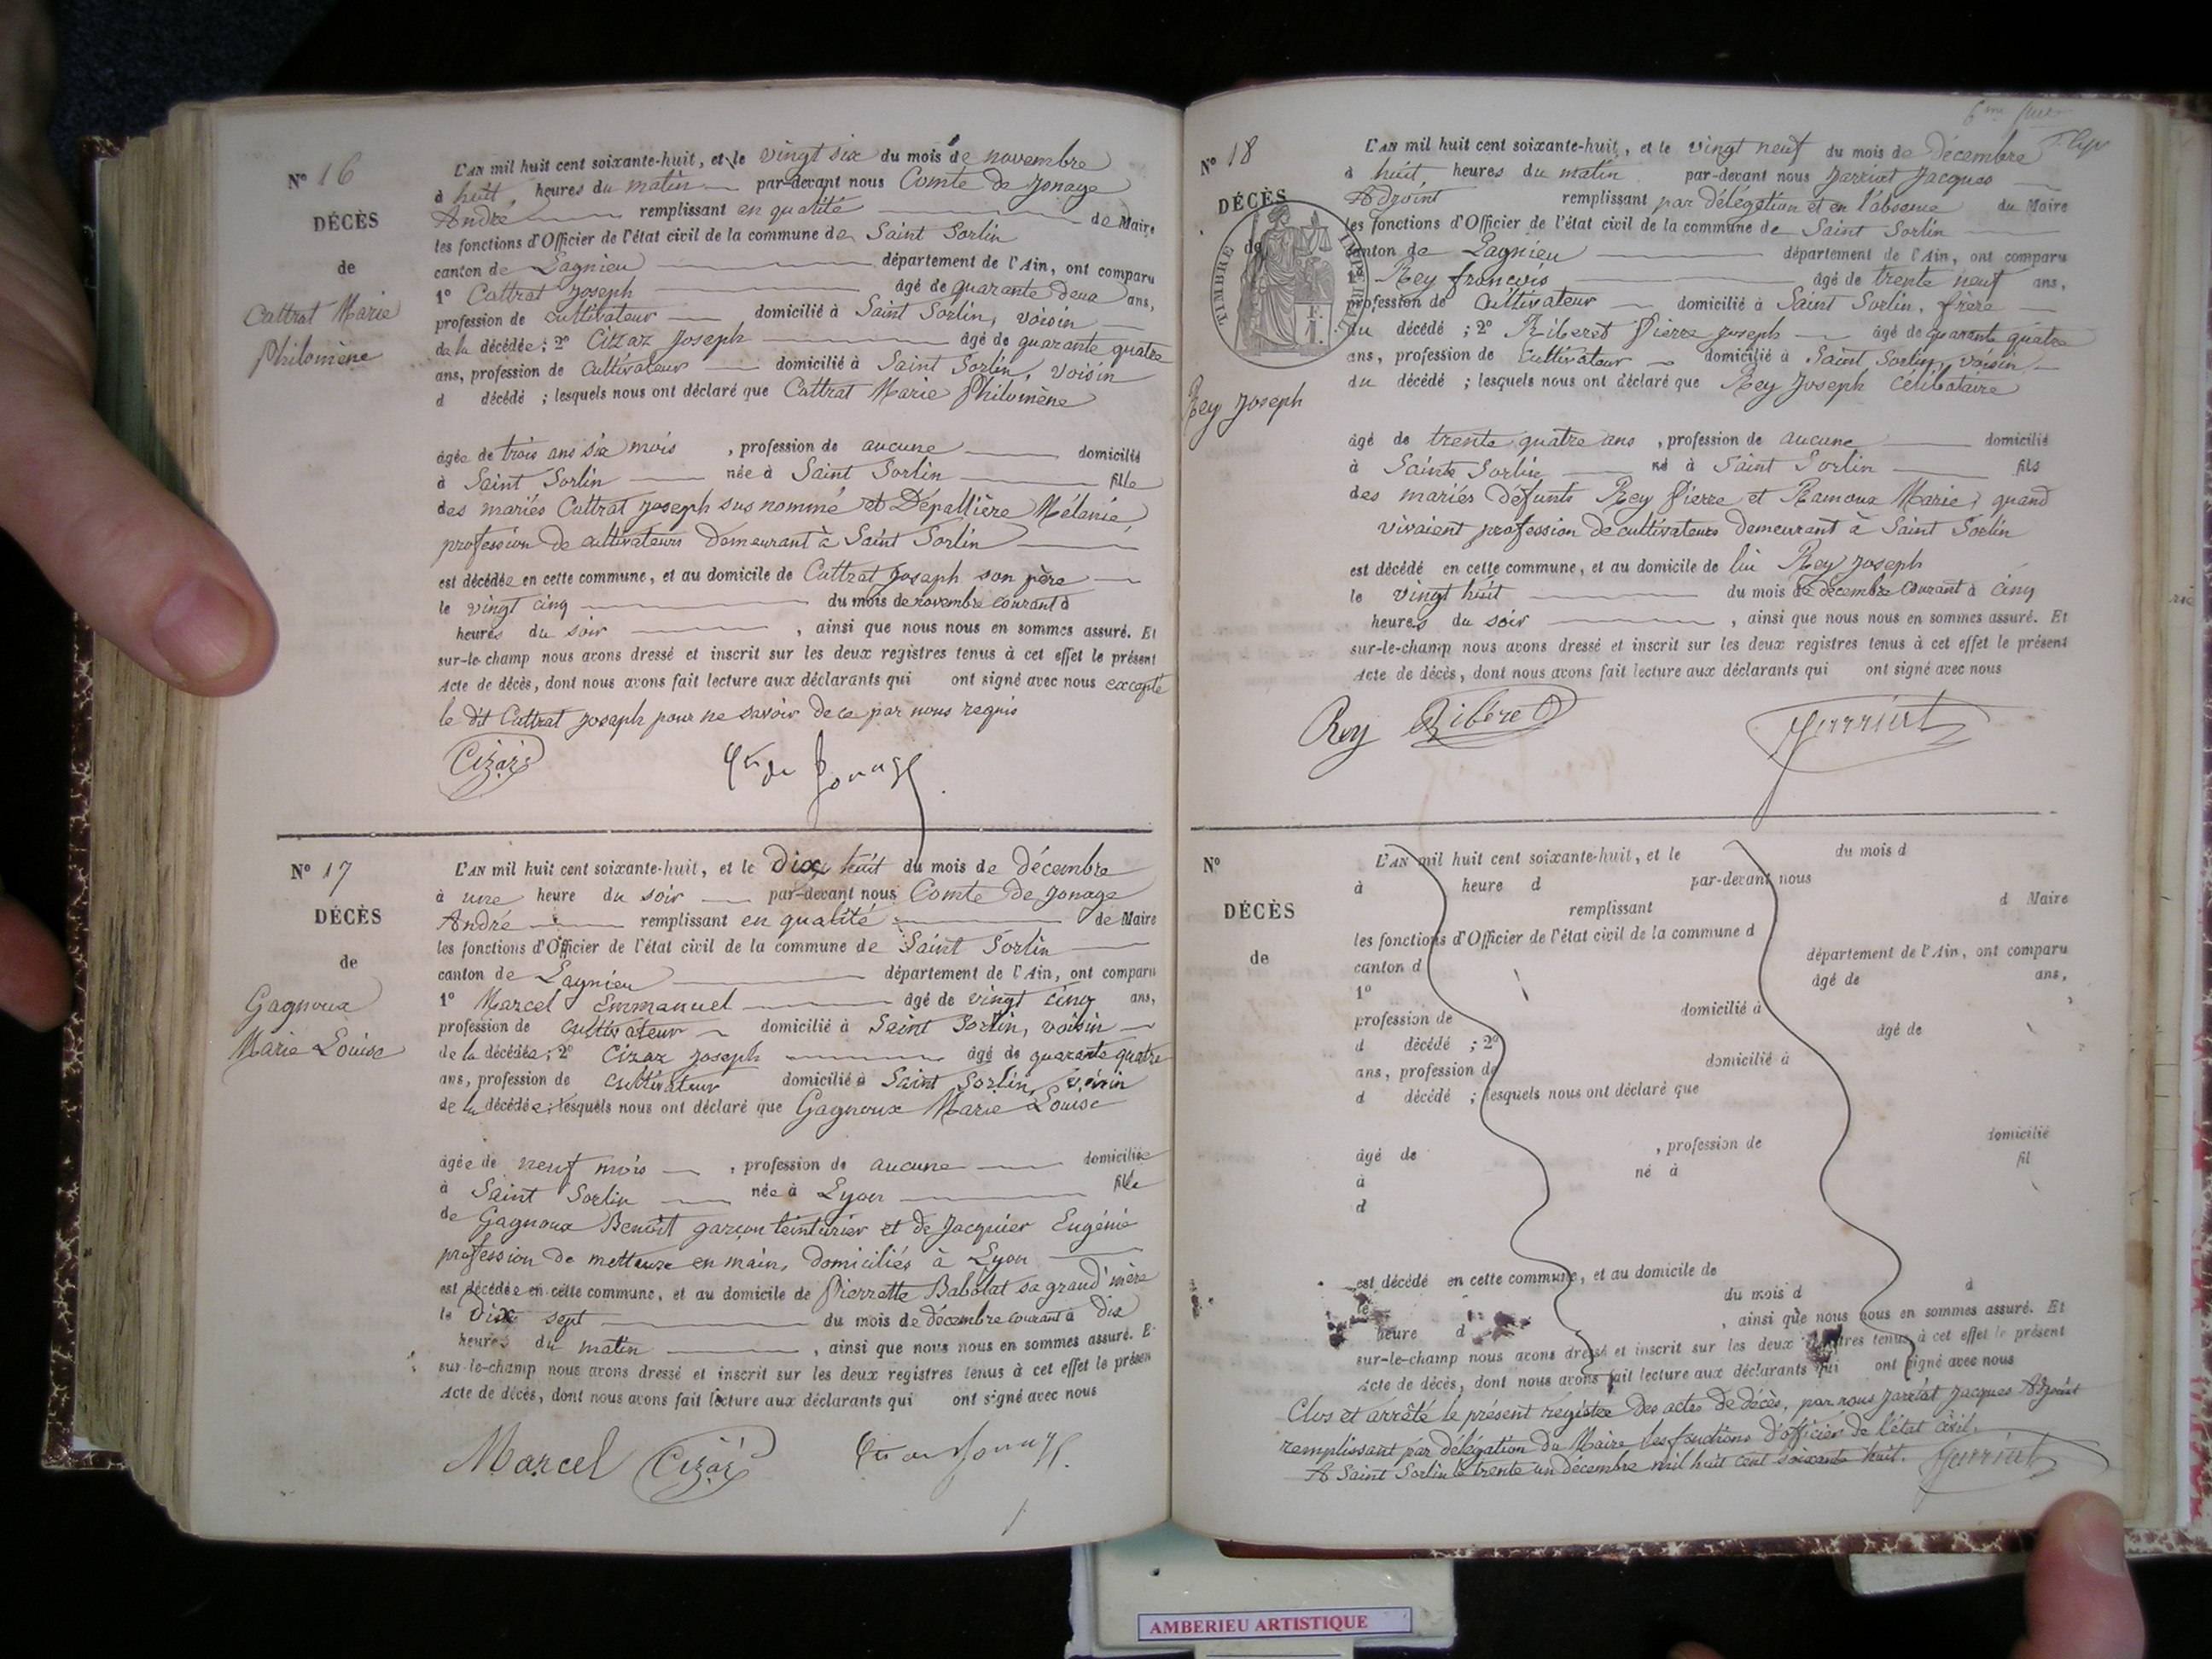 N° 16
DÉCÈS
de
Cattrat Marie
Philomène
L'AN mil huit cent soixante-huit, et le vingt six du mois de novembre
à huit heures du matin par-devant nous Comte de Jonage
André remplissant en qualité de Maire
les fonctions d'Officier de l'état civil de la commune de Saint Sorlin
canton de Lagnieu département de l'Ain, ont comparu
1° Cattrat Joseph âgé de quarante deux ans,
profession de cultivateur domicilié à Saint Sorlin, voisin
de la décédée ; 2° Cizaz Joseph âgé de quarante quatre
ans, profession de cultivateur domicilié à Saint Sorlin, voisin
d décédé ; lesquels nous ont déclaré que Cattrat Marie Philomène
âgée de trois ans six mois , profession de aucune domicilié
à Saint Sorlin née à Saint Sorlin fille
des mariés Cattrat Joseph sus nommé et Dépallière Mélanie,
profession de cultivateurs demeurant à Saint Sorlin
est décédée en cette commune, et au domicile de Cattrat Joseph son père
le vingt cinq du mois de novembre courant à
heures du soir , ainsi que nous nous en sommes assuré. Et
sur-le-champ nous avons dressé et inscrit sur les deux registres tenus à cet effet le présent
Acte de décès, dont nous avons fait lecture aux déclarants qui ont signé avec nous excepté
le dit Cattrat Joseph pour ne savoir de ce par nous requis
Cizaz Cte de Jonage
N° 17
DÉCÈS
de
Gagnoux
Marie Louise
L'AN mil huit cent soixante-huit, et le Dix huit du mois de décembre
à une heure du soir par-devant nous Comte de Jonage
André remplissant en qualité de Maire
les fonctions d'Officier de l'état civil de la commune de Saint Sorlin
canton de Lagnieu département de l'Ain, ont comparu
1° Marcel Emmanuel âgé de vingt cinq ans,
profession de cultivateur domicilié à Saint Sorlin, voisin
de la décédée ; 2° Cizaz Joseph âgé de quarante quatre
ans, profession de cultivateur domicilié à Saint Sorlin, voisin
de la décédée ; lesquels nous ont déclaré que Gagnoux Marie Louise
âgée de neuf mois , profession de aucune domiciliée
à Saint Sorlin née à Lyon fille
de Gagnoux Benoît garçon teinturier et de Jacquier Eugénie
profession de metteuse en main, domiciliés à Lyon
est décédée en cette commune, et au domicile de Pierrette Babolat sa grand'mère
le Dix sept du mois de décembre courant à dix
heures du matin , ainsi que nous nous en sommes assuré. Et
sur-le-champ nous avons dressé et inscrit sur les deux registres tenus à cet effet le présen
Acte de décès, dont nous avons fait lecture aux déclarants qui ont signé avec nous
Marcel Cizaz Cte de Jonage
N° 18
DÉCÈS
de
TIMBRE IMPERIAL
Rey Joseph
L'AN mil huit cent soixante-huit, et le vingt neuf du mois de décembre
à huit heures du matin par-devant nous Jarriat Jacques
Adjoint remplissant par délégation et en l'absence du Maire
les fonctions d'Officier de l'état civil de la commune de Saint Sorlin
canton de Lagnieu département de l'Ain, ont comparu
1° Rey françois âgé de trente neuf ans,
profession de cultivateur domicilié à Saint Sorlin, frère
du décédé ; 2° Riberet Pierre Joseph âgé de quarante quatre
ans, profession de cultivateur domicilié à Saint Sorlin, voisin
du décédé ; lesquels nous ont déclaré que Rey Joseph célibataire
âgé de trente quatre ans , profession de aucune domicilié
à Saint Sorlin né à Saint Sorlin fils
des mariés défunts Rey Pierre et Ramoux Marie, quand
vivaient profession de cultivateurs demeurant à Saint Sorlin
est décédé en cette commune, et au domicile de lui Rey Joseph
le vingt huit du mois de décembre courant à cinq
heures du soir , ainsi que nous nous en sommes assuré. Et
sur-le-champ nous avons dressé et inscrit sur les deux registres tenus à cet effet le présent
Acte de décès, dont nous avons fait lecture aux déclarants qui ont signé avec nous
Rey Riberet Jarriat
N°
DÉCÈS
de
L'AN mil huit cent soixante-huit, et le du mois d
à heure d par-devant nous
remplissant d Maire
les fonctions d'Officier de l'état civil de la commune d
canton d département de l'Ain, ont comparu
1° âgé de ans,
profession de domicilié à
d décédé ; 2° âgé de
ans, profession de domicilié à
d décédé ; lesquels nous ont déclaré que
âgé de , profession de domicilié
à né à fil
d
est décédé en cette commune, et au domicile de
le du mois d à
heure d , ainsi que nous nous en sommes assuré. Et
sur-le-champ nous avons dressé et inscrit sur les deux registres tenus à cet effet le présent
Acte de décès, dont nous avons fait lecture aux déclarants qui ont signé avec nous
Clos et arrêté le présent registre des actes de décès, par nous Jarriat Jacques Adjoint
remplissant par délégation du Maire les fonctions d'officier de l'état civil.
A Saint Sorlin le trente un décembre mil huit cent soixante huit. Jarriat
AMBERIEU ARTISTIQUE